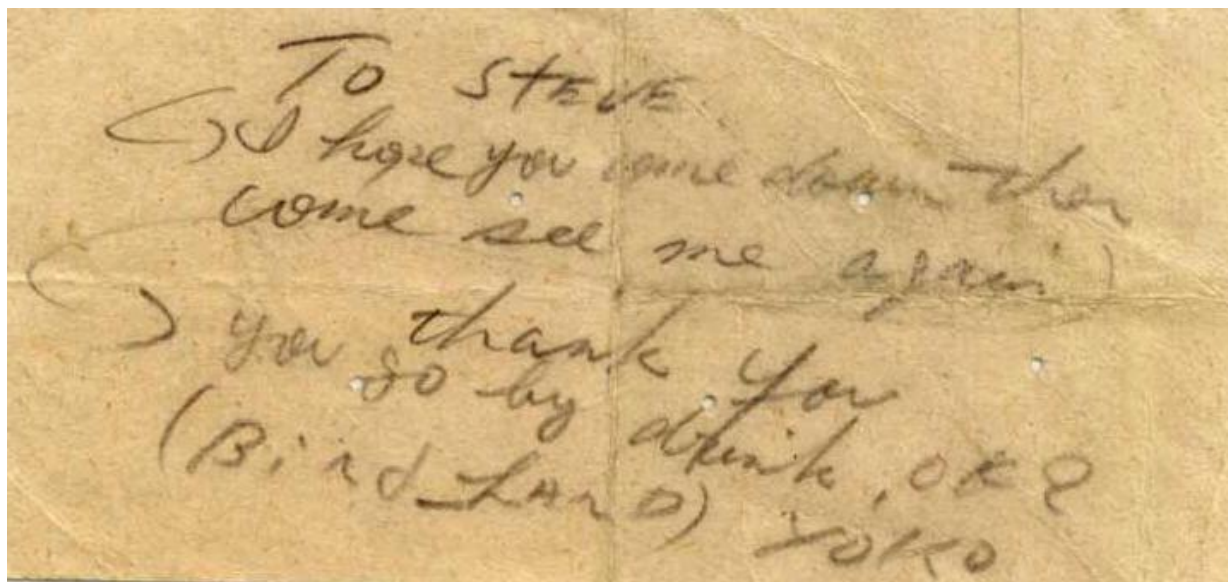 To STEVE
(I hope you come down then
come see me again)
thank you
you go by drink, OK?
(Bird Land) YOKO